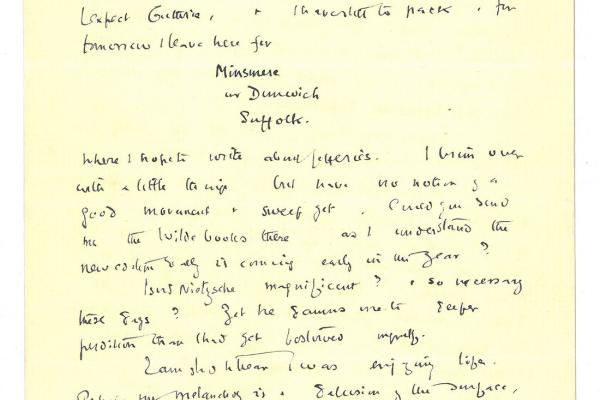 I expect Guthrie, & I have still to pack, for
tomorrow I leave here for
Minsmere
nr Dunwich
Suffolk.
where I hope to write about Jefferies. I brim over
with a little temp but have no notion of a
good movement & sweep yet. Could you send
me the Wilde books there as I understand the
new edition is coming early in the year?
Isnt Nietzsche magnificent? & so necessary
these days? Yet he damns me to deeper
perdition than I had yet bestowed myself.
I am sorry to hear I was enjoying life.
my melancholy is a delusion of the surface,